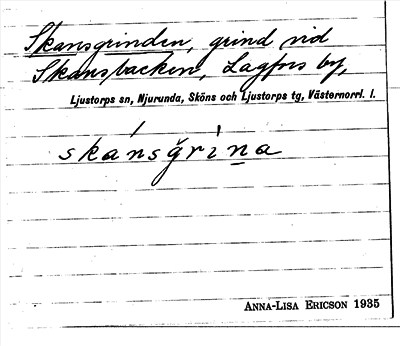 Skansgrinden, grind vid
Skansbacken, Lagfors by,
Ljustorps sn, Njurunda, Sköns och Ljustorps tg, Västernorrl. l.
skánsg̊rìn̲a
ANNA-LISA ERICSON 1935